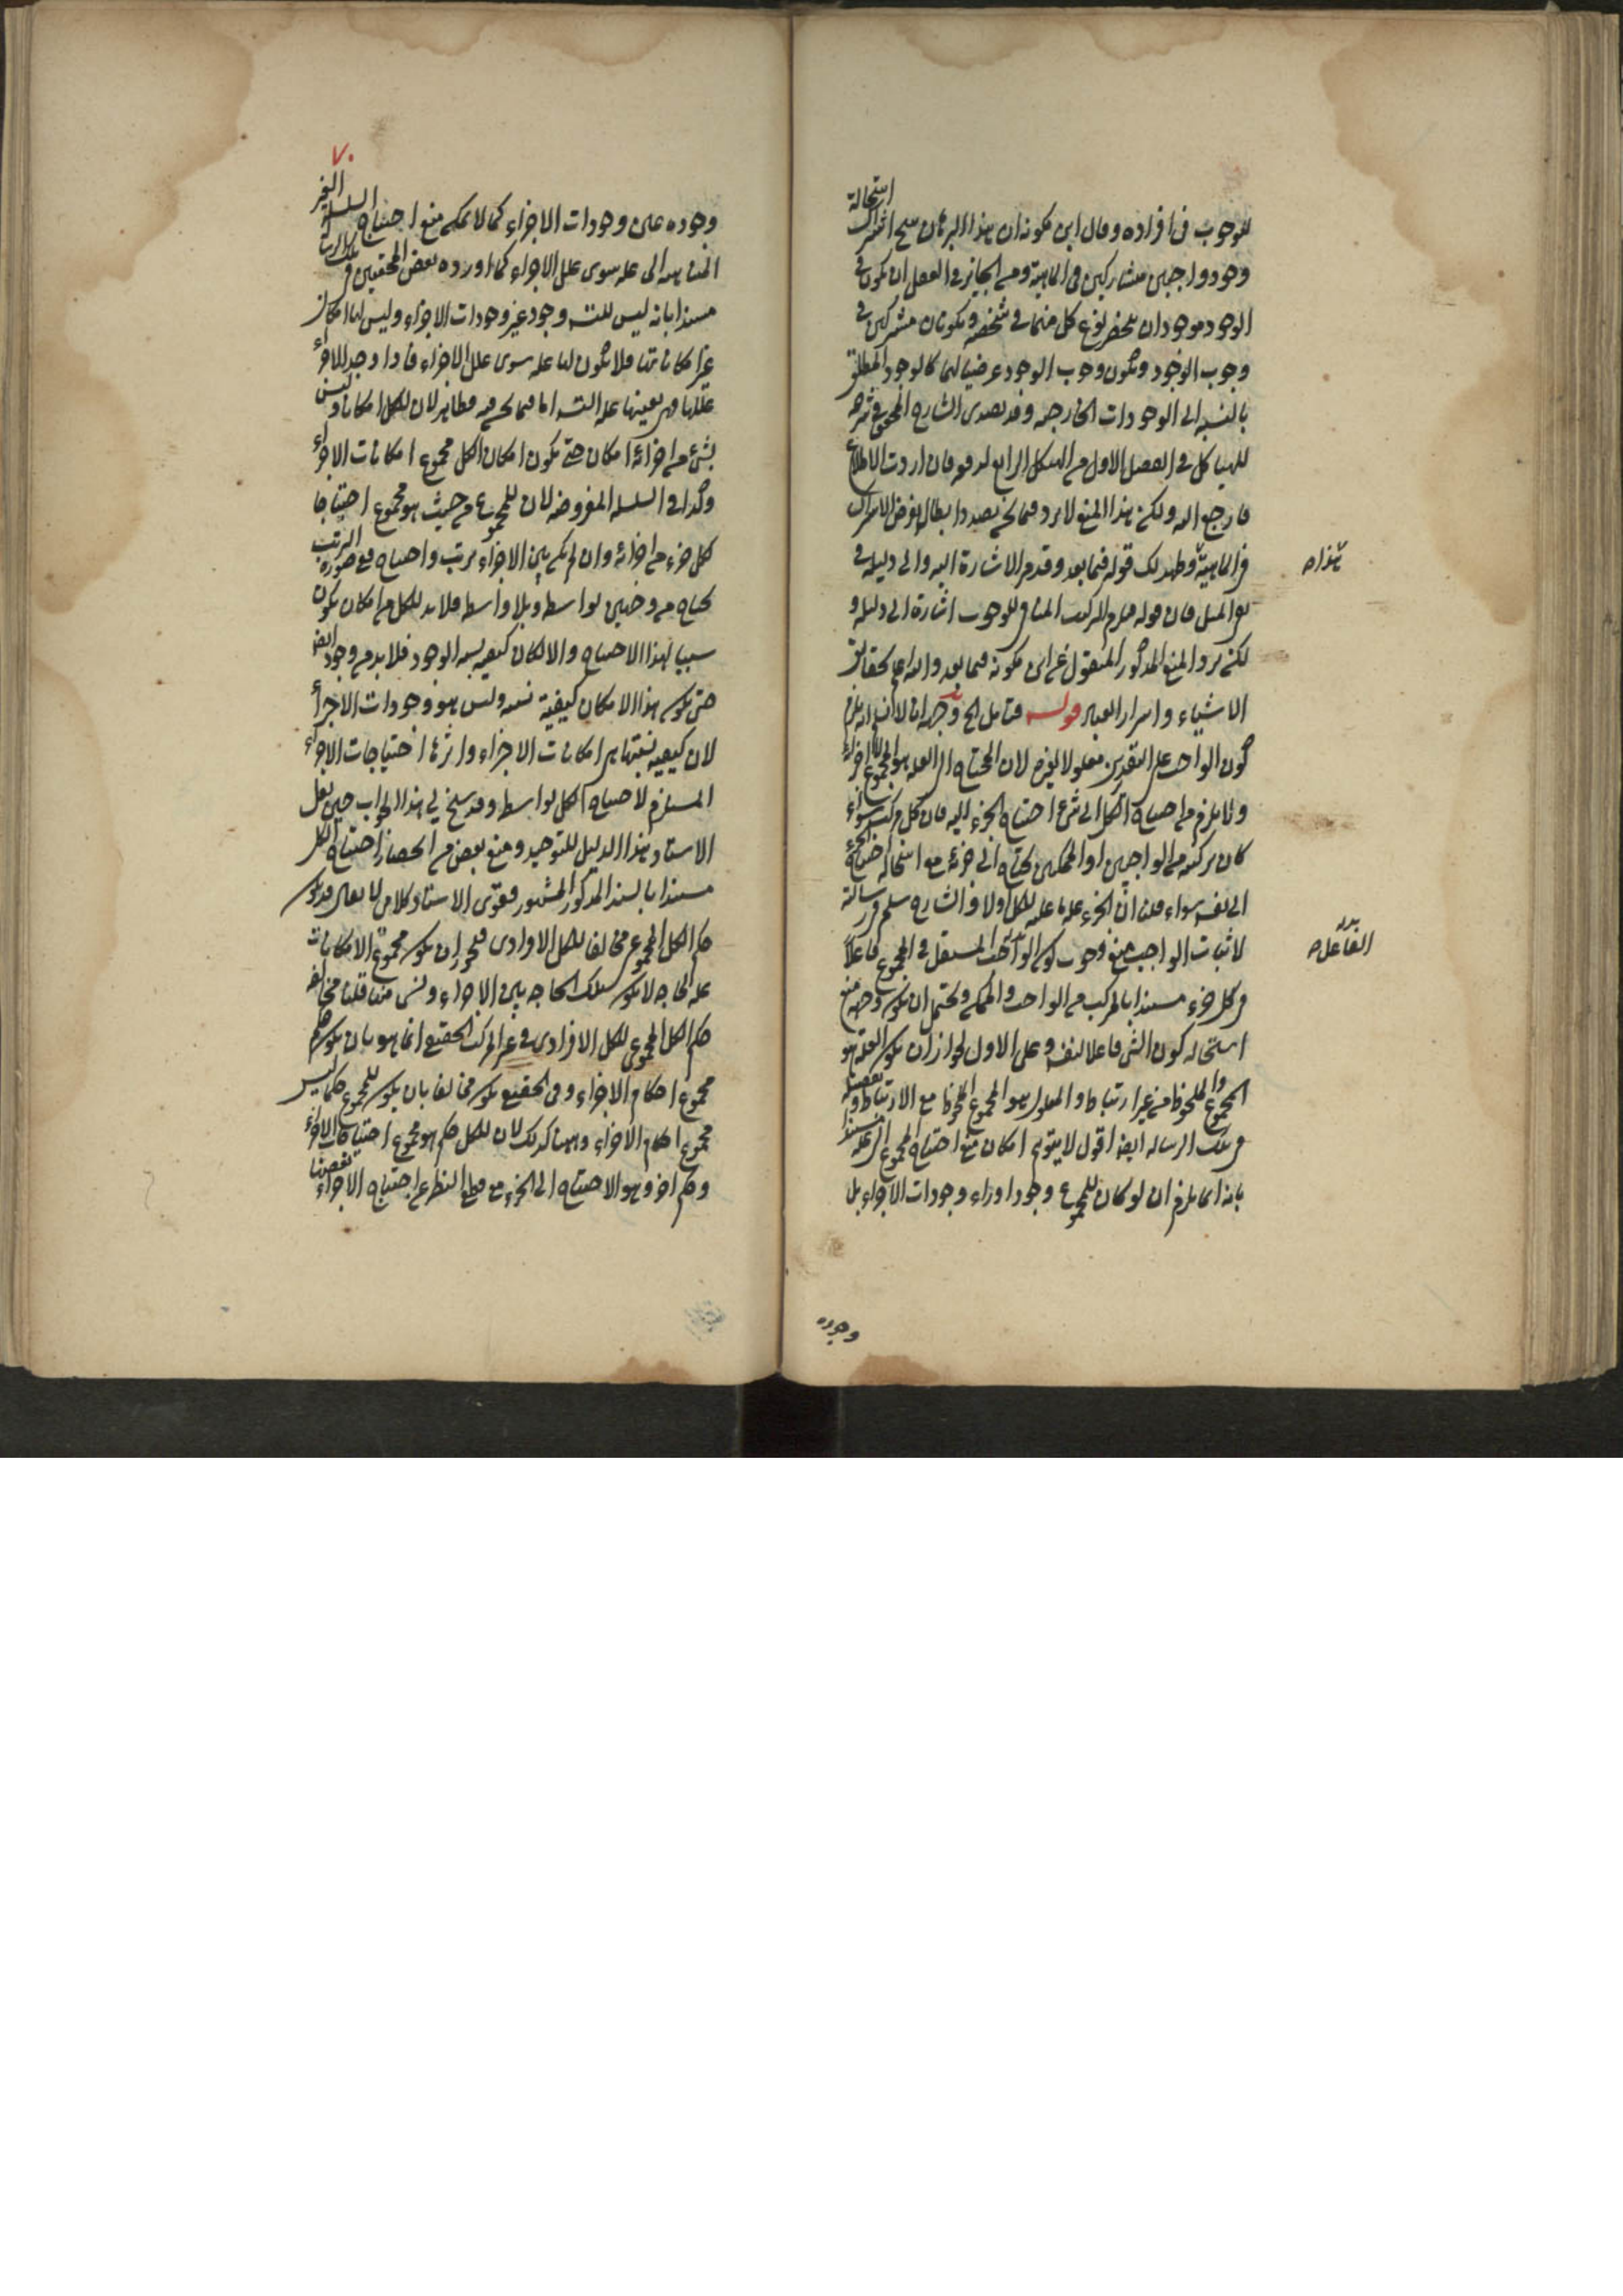 للوجوب فى افراده وقال ابن كمونه ان هذا البرهان ينتج استحالة اشتراك
وجود واجبين متشاركين فى الماهية ومن الجايز فى العقل ان يكون فى
الوجود موجودان ينحصر نوع كل منهما فى شخصه ويكونان مشتركين فى
وجوب الوجود ويكون وجوب الوجود عرضيا لهما كالوجود المطلق
بالنسبه الى الوجودات الخارجيه وقد تصدى الشارح المحقق فى شرحه
للهياكل فى الفصل الاول من الهيكل الرابع لدفعه فان اردت الاطلاع
فارجع اليه ولكن هذا المنع لا يرد فيما نحن بصدد ابطال لفرض الاشتراك
فى الماهية وظهر لك قوله فيما بعد وقدم الاشارة اليه والى دليله فى
هذا ص
فان قوله فيلزم التركيب المنافى للوجوب اشارة الى دليله و
لكن يرد المنع المذكور المنقول عن ابن كمونه فيما بعد والله اعلم بحقايق
الاشياء واسرار العباد قوله فتأمل الخ وجهه انا لا نسلم انه يلزم
كون الواحد على التقديرين معلولا لغيره لان المحتاج الى العله هو المجموع لا الاجزاء
ولا يلزم من احتياج الكل الى شئ احتياج الجزء اليه فان كل مركب سواء
كان تركبه من الواجبين او الممكنين يحتاج الى جزئه مع استحالة احتياج الجزء
الى نفسه سواء قلنا ان الجزء علة ما عليه الكل او لا والشارح سلم فى رسالة
لاثبات الواجب منع وجوب كون الواحد المستقل فى المجموع فاعلا
الفاعل ص
فى كل جزء مستندا بالمركب من الواجب والممكن ويحتمل ان يكون وجهه منع
استحاله كون الشئ فاعلا لنفسه وعلى الاول لجواز ان يكون العله هو
المجموع الملحوظ من غير ارتباط والمعلول هو المجموع الملحوظ مع الارتباط و
فى تلك الرساله ايضا اقول لا يتوهم امكان منع احتياج المجموع الى علة مستندا
بانه انما يلزم ان لو كان للمجموع وجود وراء وجودات الاجزاء بل
وجوده
٧٠
وجوده عين وجودات الاجزاء كما لا يمكن منع احتياج السلسلة الغير
المتناهيه الى عله سوى علل الاجزاء كما اورده بعض المحققين فى تلك الرسالة
مستندا بانه ليس للسلسلة وجود غير وجودات الاجزاء وليس لها امكان
غير امكاناتها فلا يكون لها عله سوى علل الاجزاء فاذا وجد للاجزاء
عللها فهى بعينها علة السلسلة اما فيما نحن فيه فظاهر لان للكل امكانا وليس
بشئ من اجزائه امكان حتى يكون امكان الكل مجموع امكانات الاجزاء
وكذا فى السلسله المفروضه لان للمجموع من حيث هو مجموع احتياجا
كل جزء من اجزائه وان لم يكن بين الاجزاء ترتب واحتياج ومع صورة الترتب
يحتاج من وجهين بواسطه وبلا واسطه فلا بد للكل من امكان يكون
سببا لهذا الاحتياج والامكان كيفيه نسبة الوجود فلا بد من وجود ايضا
حتى يكون هذا الامكان كيفية نسبته وليس هو وجودات الاجزاء
لان كيفيه نسبتها هى امكانات الاجزاء واثرها احتياجات الاجزاء
المستلزم لاحتياج الكل بواسطه وقد سنح لى هذا الجواب حين نقل
الاستاد هذا الدليل للتوحيد ومنع بعض من الحضار احتياج الكل
مستندا بالسند المذكور المشهور فقوى الاستاد كلامى لا يقال قد يكون
حكم الكل المجموعى مخالفا للكل الافرادى فيجوز ان يكون مجموع الامكانات
علة لحاجه لا يكون تلك الحاجه بين الاجزاء قلنا مخالفة
حكم الكل المجموعى للكل الافرادى فى غير المركب الحقيقى انما هو بان يكون حكم
مجموع احكام الاجزاء وفى الحقيقى يكون مخالفا بان يكون للمجموع حكما ليس
مجموع احكام الاجزاء وههنا كذلك لان للكل حكم هو مجموع احتياجات الاجزاء
وحكم اخر وهو الاحتياج الى الجزء مع قطع النظر عن احتياج الاجزاء بعضها